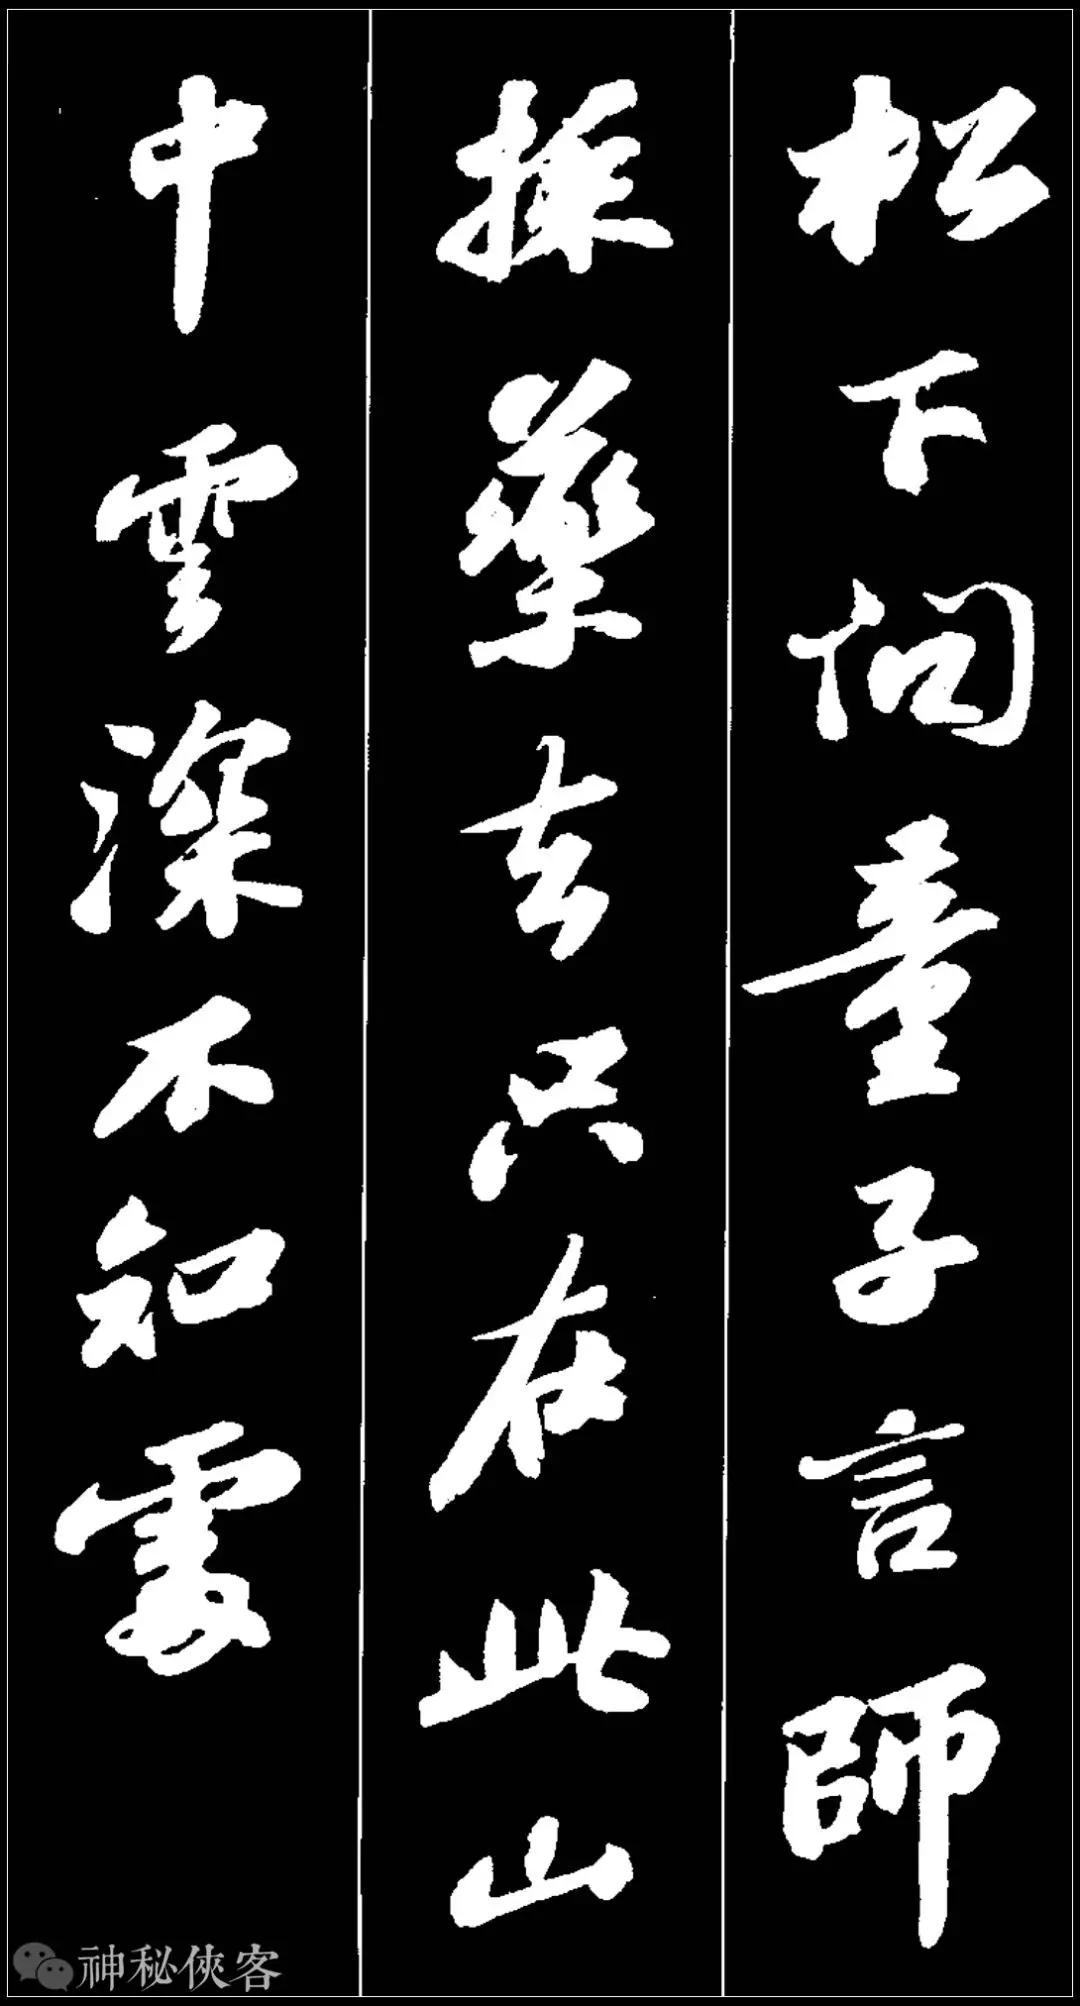 松下問童子言師
採藥去只在此山
中雲深不知處
神秘俠客